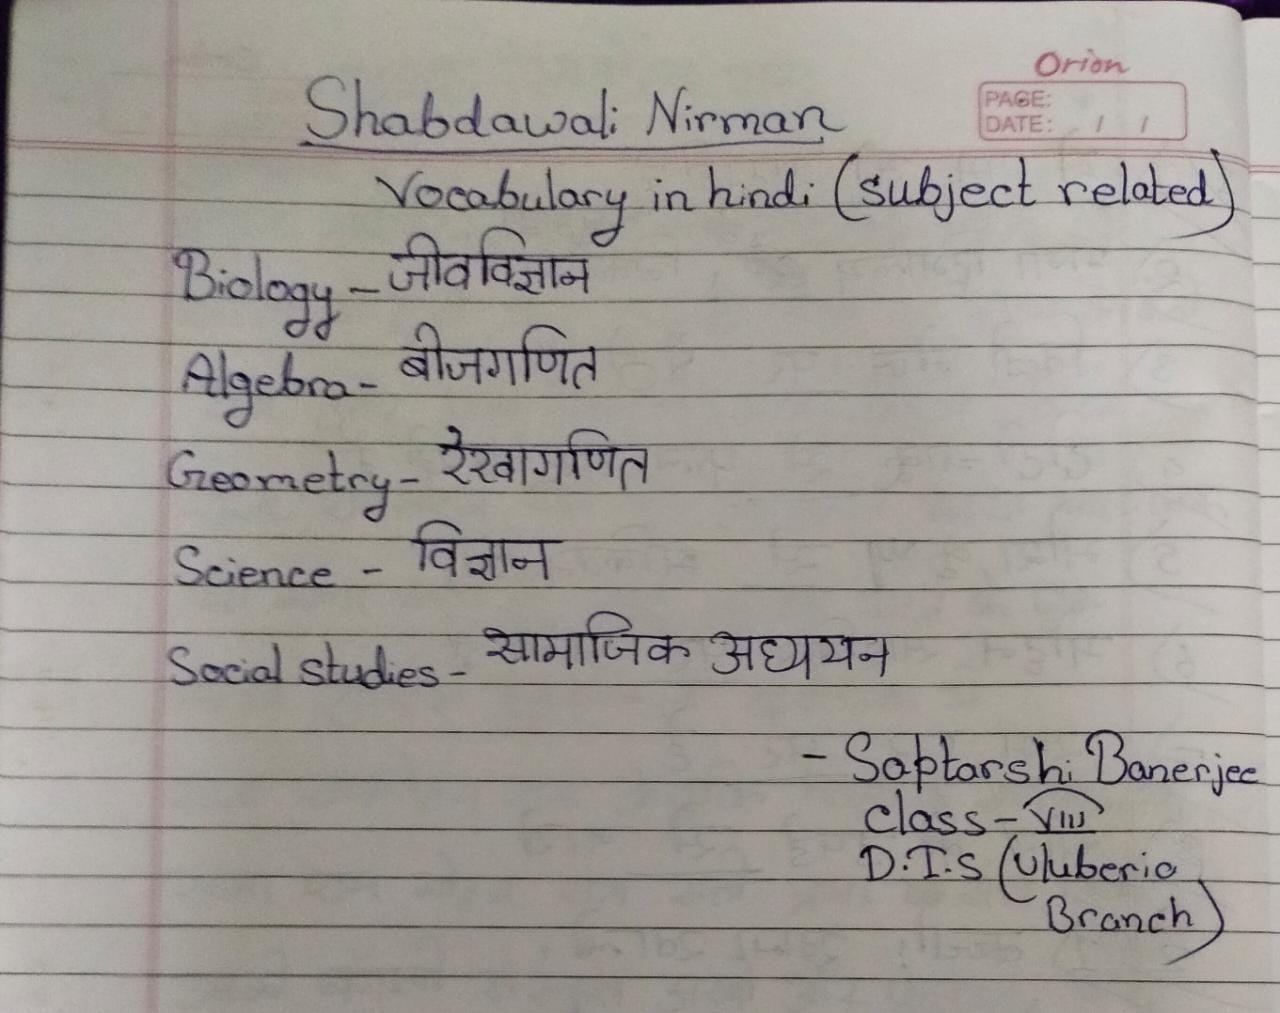 Orion
PAGE:
DATE: / /
Shabdawali Nirman
Vocabulary in hindi (subject related)
Biology - जीवविज्ञान
Algebra - बीजगणित
Geometry - रेखागणित
Science - विज्ञान
Social studies - सामाजिक अध्ययन
- Saptarshi Banerjee
Class - VIII
D.I.S (Uluberia
Branch)